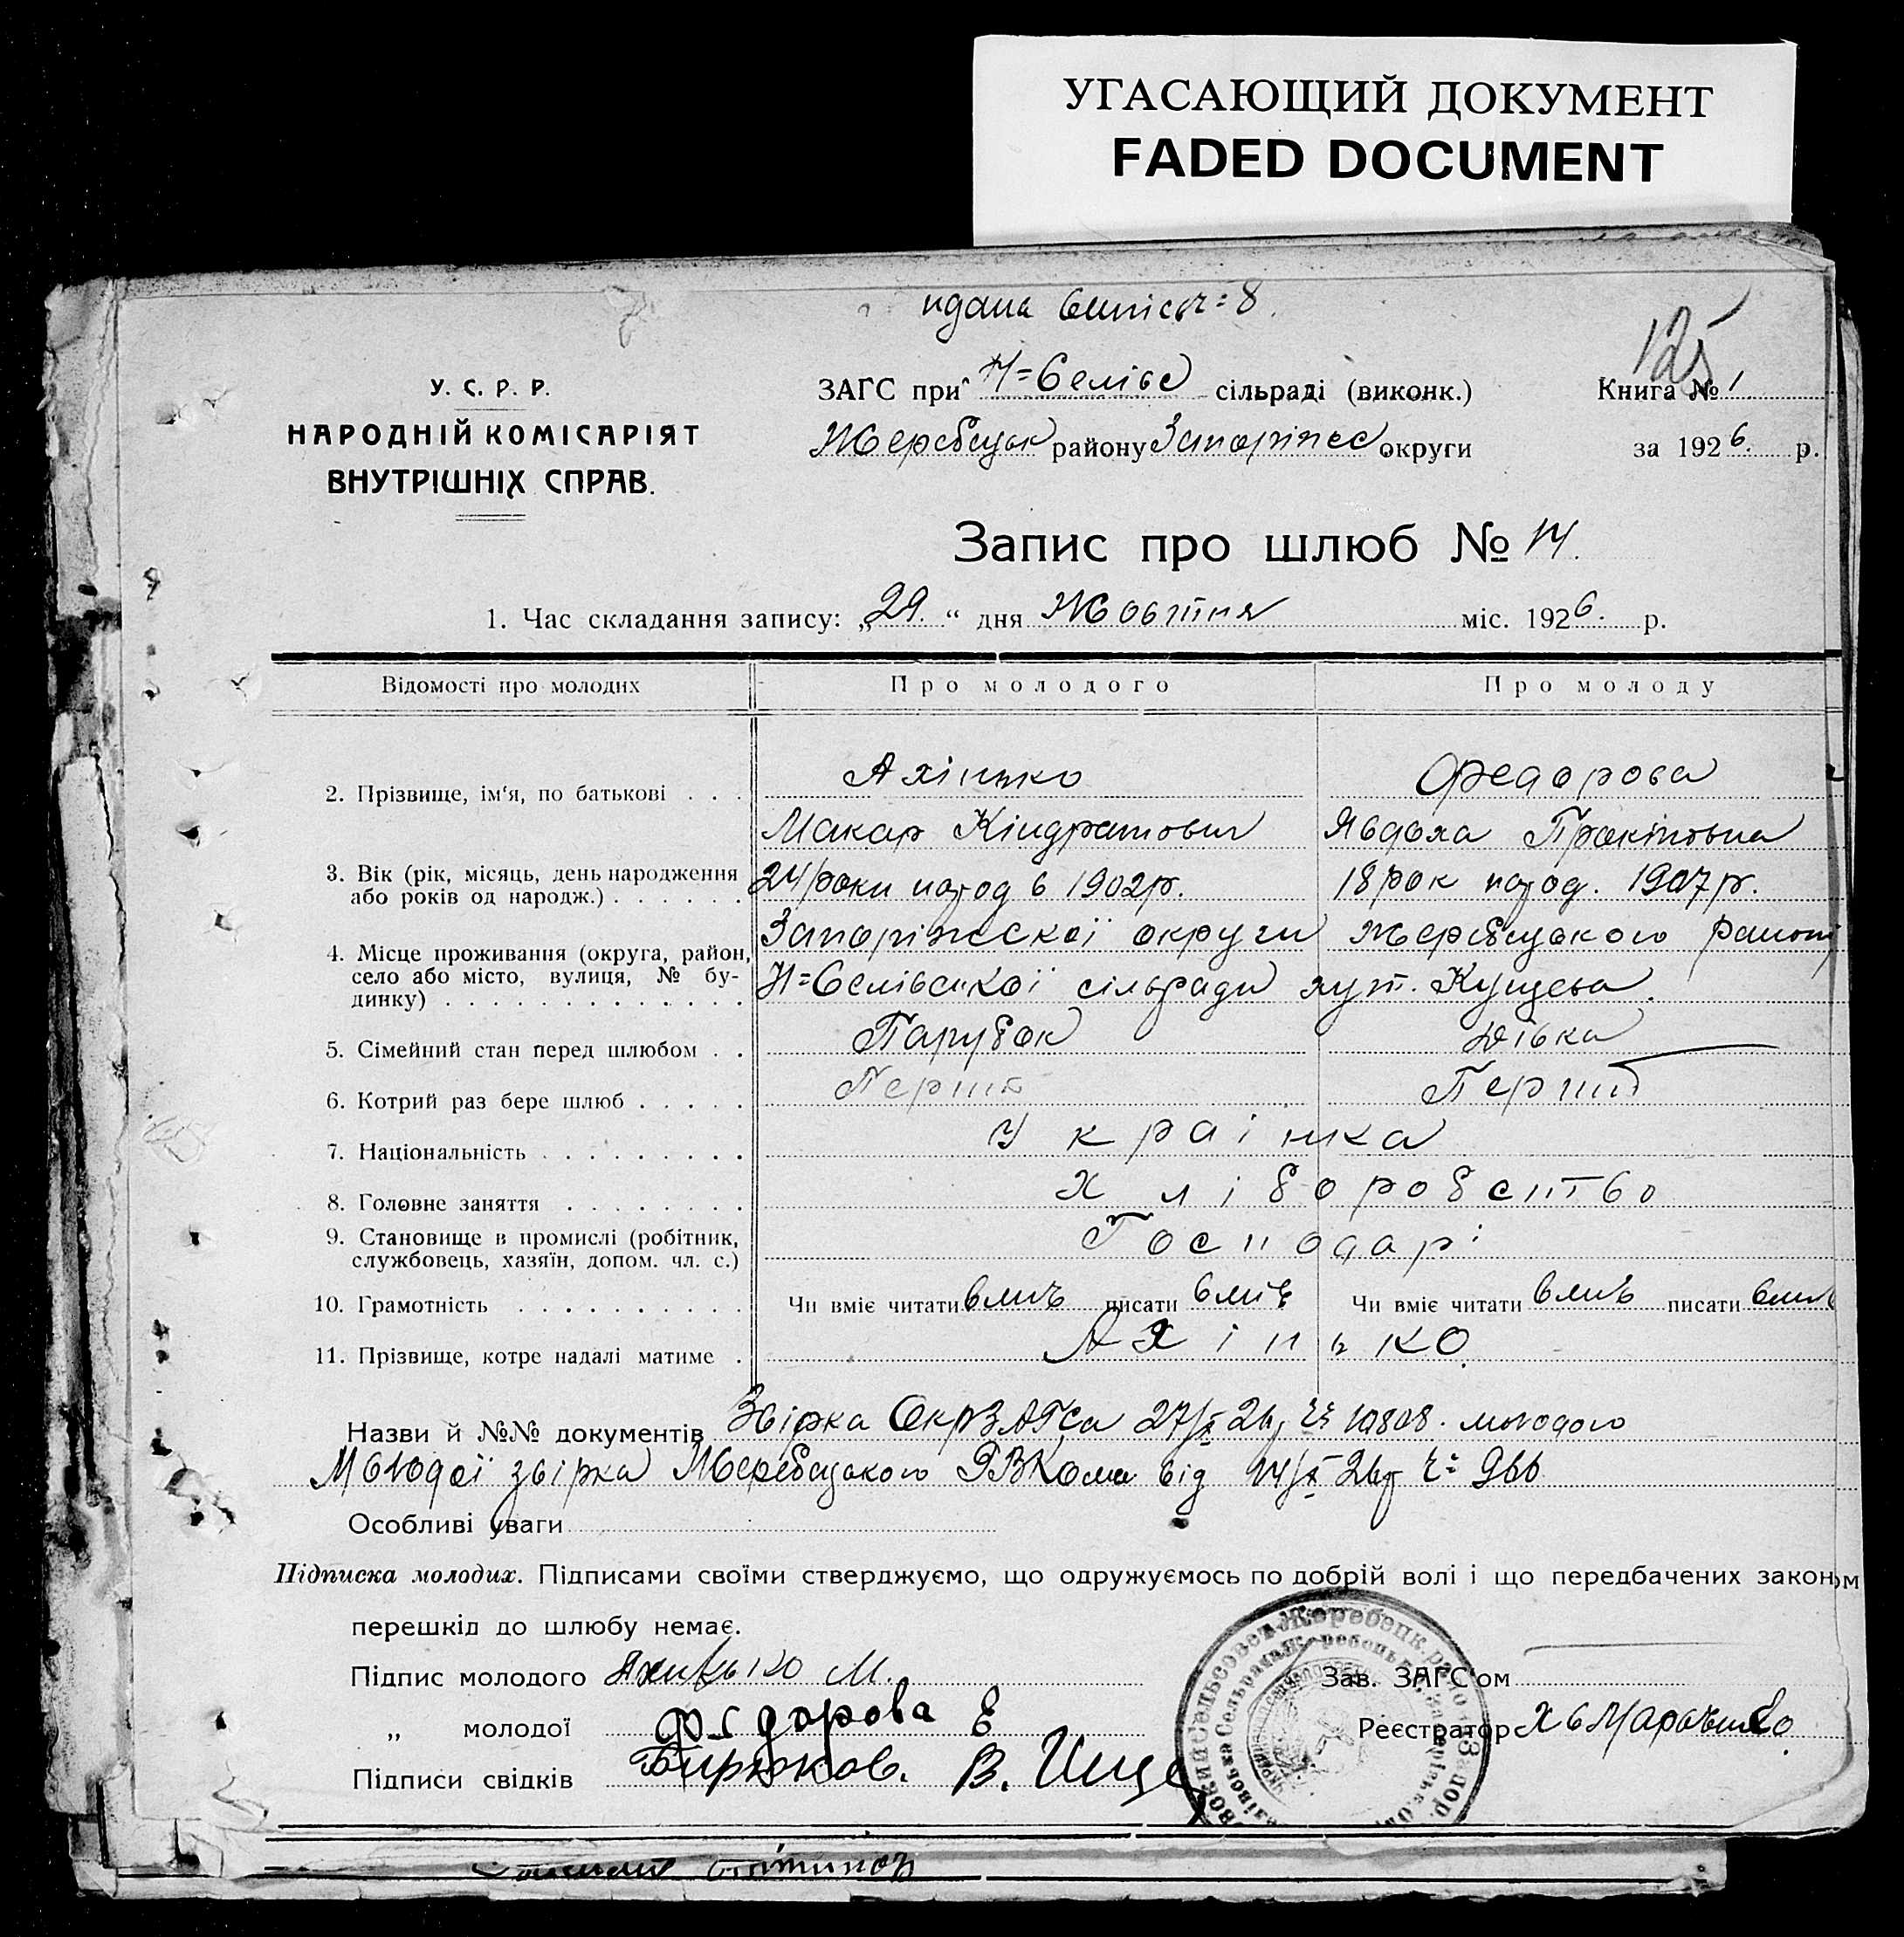 УГАСАЮЩИЙ ДОКУМЕНТ
FADED DOCUMENT
125
У. С. Р. Р.
НАРОДНІЙ КОМІСАРІЯТ
ВНУТРІШНІХ СПРАВ.
ЗАГС при Н=Велівс сільраді (виконк.)
Книга № 1
Жеребецьк району Запоріжс округи
за 1926. р.
Запис про шлюб № 14.
1. Час складання запису: „29.“ дня Жовтня міс. 1926. р.
Відомості про молодих
Про молодого
Про молоду
2. Прізвище, ім'я, по батькові
Ахінько
Макар Кіндратович
Федорова
Явдоха
3. Вік (рік, місяць, день народження або років од народж.)
24/роки народ в 1902р.
18 рок народ. 1907 р.
4. Місце проживання (округа, район, село або місто, вулиця, № будинку)
Запоріжської округи Жеребецького району
Н=Велівської сільради хут. Кущева.
5. Сімейний стан перед шлюбом
Парубок
Дівка
6. Котрий раз бере шлюб
Перший
Перший
7. Національність
Украінка
8. Головне заняття
Хліборобство
9. Становище в промислі (робітник, службовець, хазяїн, допом. чл. с.)
Господарі
10. Грамотність
Чи вміє читати вміє писати вміє
Чи вміє читати вміє писати вміє
11. Прізвище, котре надалі матиме
Ахінько.
Назви й №№ документів Звірка ОкрЗАГСа 27/X 26р чс 10808. молодого
Молодої звірка Жеребецького РВКома від 14/X 26р ч= 966
Особливі уваги
Підписка молодих. Підписами своїми стверджуємо, що одружуємось по добрій волі і що передбачених законом
перешкід до шлюбу немає.
Підпис молодого Ахинько М.
Зав. ЗАГС'ом
„ молодої Федорова Е
Реєстратор
Підписи свідків Бирюков. В. Ище